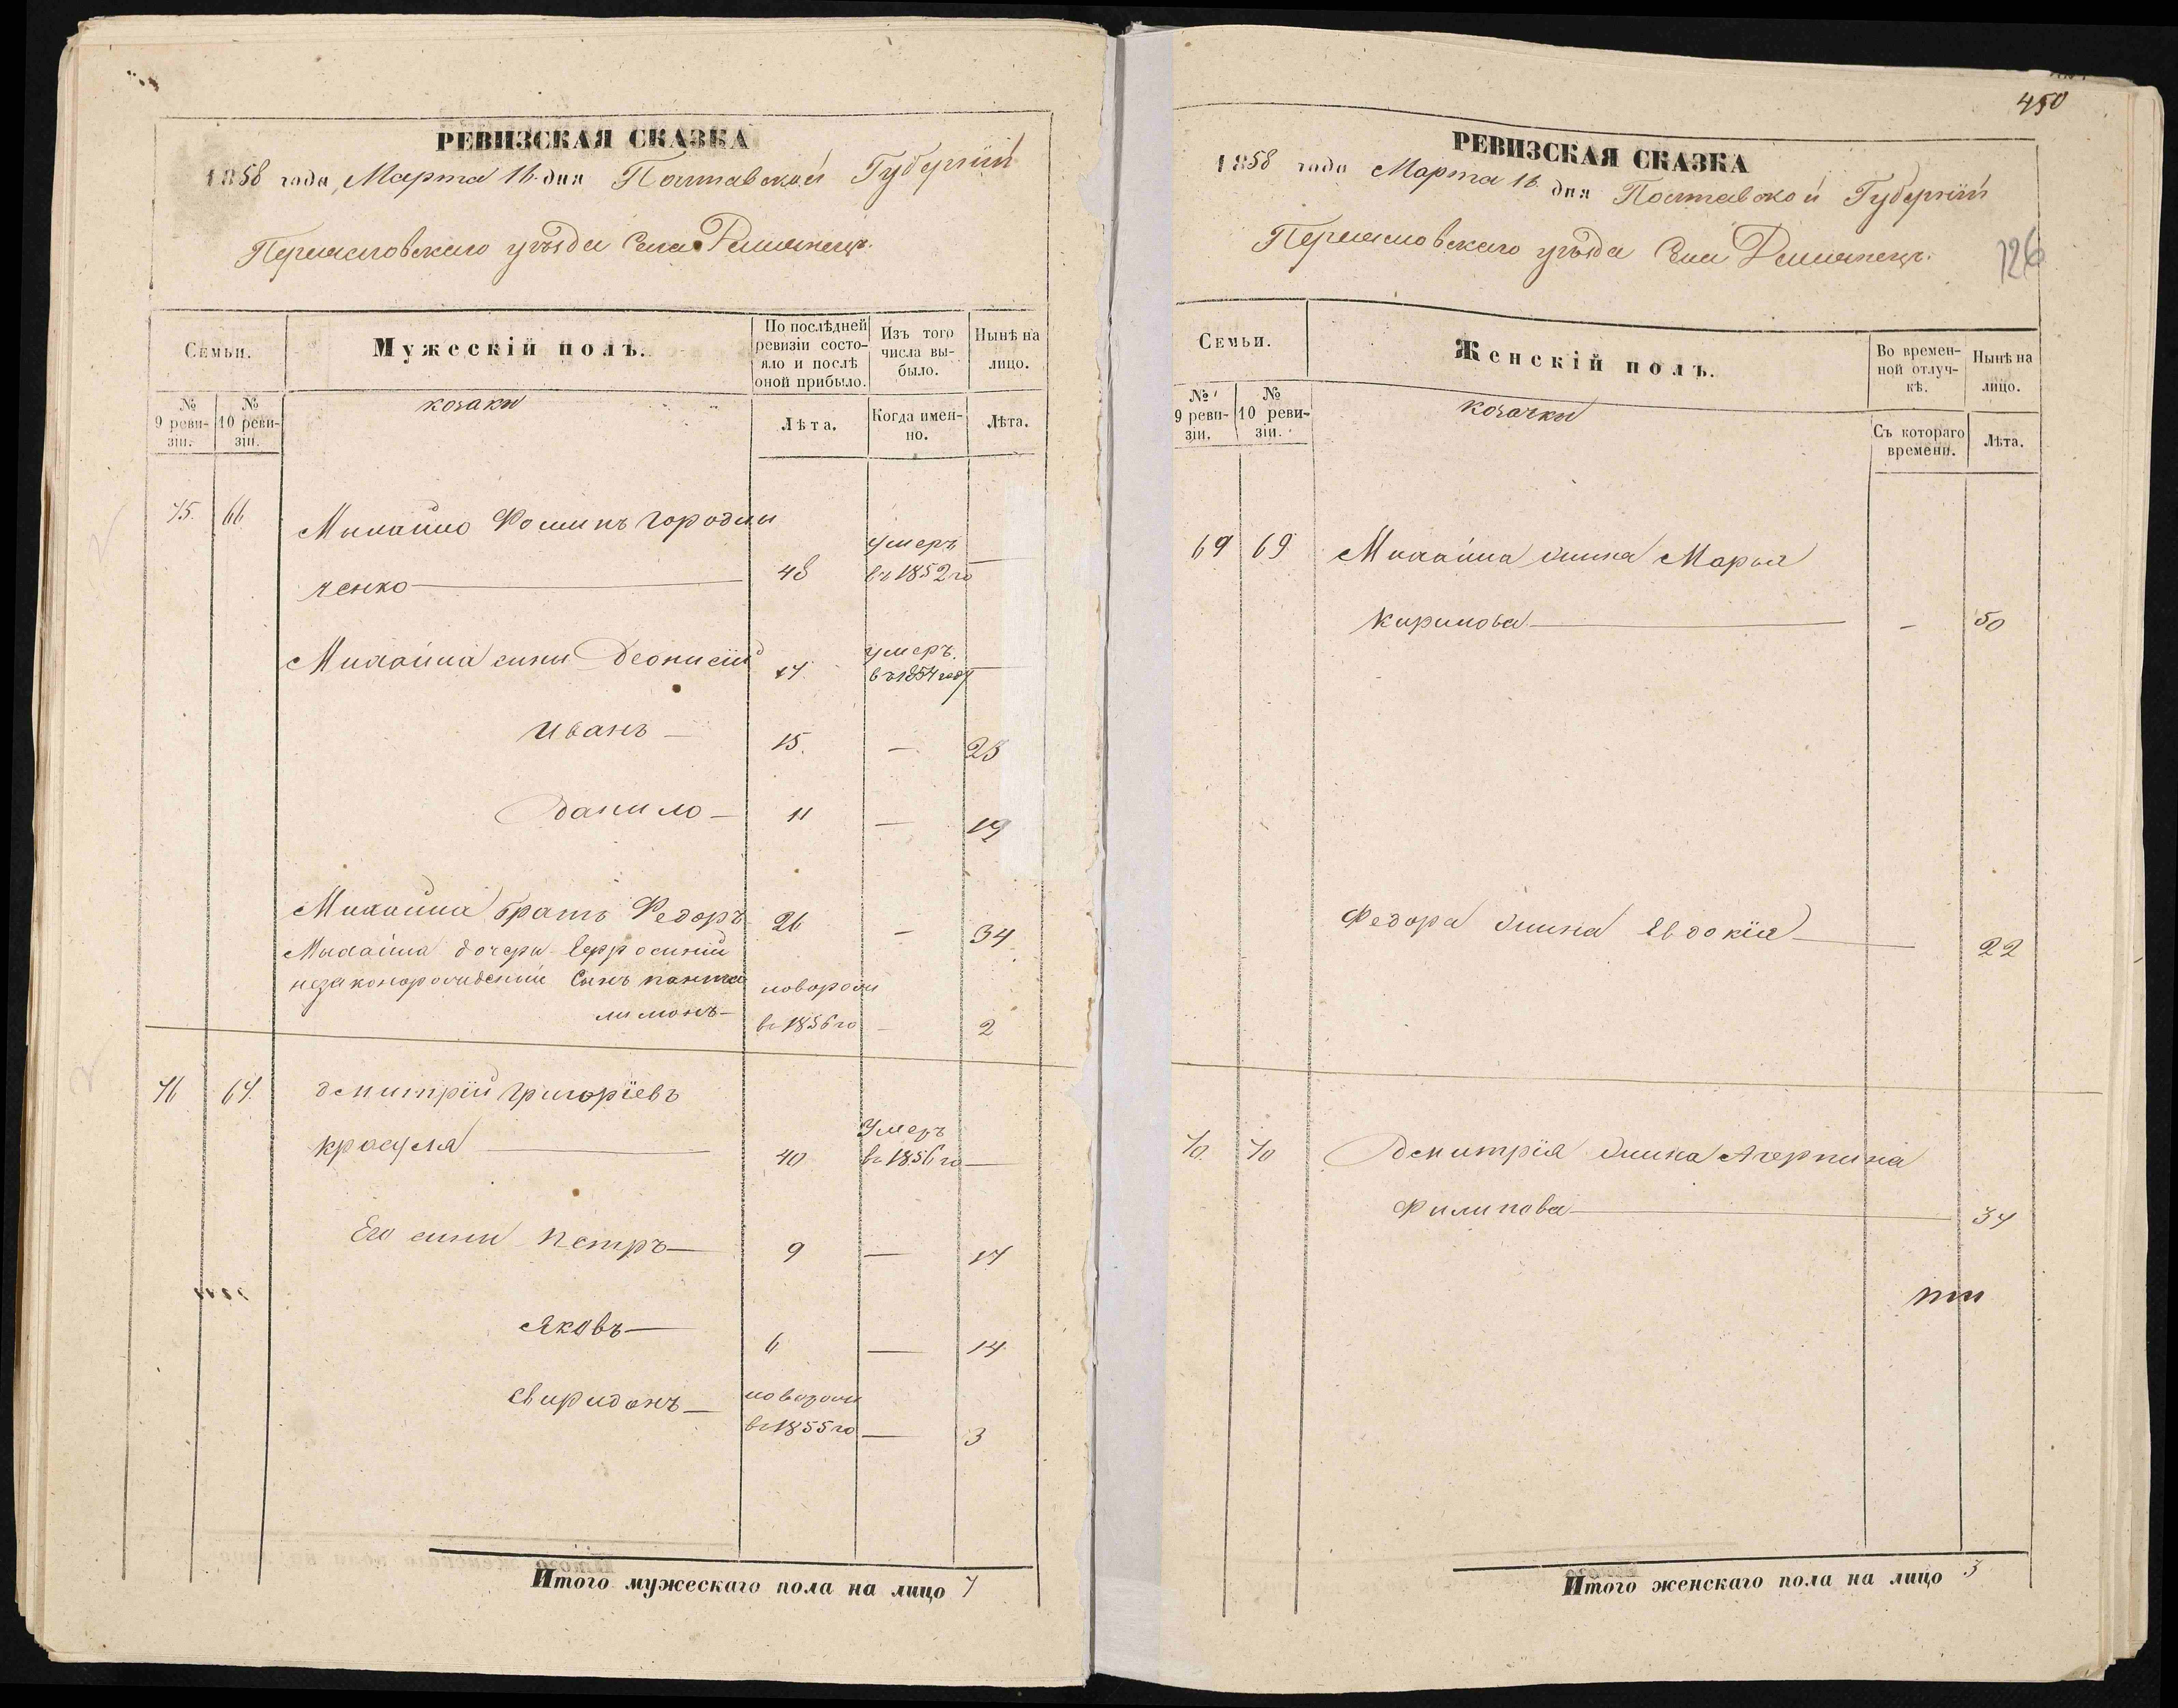 РЕВИЗСКАЯ СКАЗКА
1858 года, Марта 16 дня Полтавской Губернїи
Переясловскаго уѣзда Села
Семьи.
Мужескій полъ.
По послѣдней ревизіи состояло и послѣ оной прибыло.
Изъ того числа выбыло.
Нынѣ на лицо.
№ 9 ревизіи.
№ 10 ревизіи.
козаки
Лѣта.
Когда именно.
Лѣта.
75. 66
Михайло Фоминъ Городни
ченко 48 умеръ въ 1852 го —
Михайла сыны Деонисїй 17. умеръ въ 1854 году —
Иванъ — 15. — 23
Данило — 11 — 19
Михайла братъ Федоръ 26 — 34
Михайла дочери Ефросинїи
незаконорожденный Сынъ Панте
лимонъ — новорож въ 1856 го — 2
76 67.
Дмитрїй Григорїевъ
Красуля 40 Умеръ въ 1856 го —
Его сыны Петръ — 9 — 17
Яковъ — 6 — 14
Свиридонъ — новорож въ 1855 го — 3
Итого мужескаго пола на лицо 7
450
РЕВИЗСКАЯ СКАЗКА
1858 года Марта 16 дня Полтавской Губернїи
Переясловскаго уѣзда Села
126
Семьи.
Женскій полъ.
Во временной отлучкѣ.
Нынѣ на лицо.
№ 9 ревизіи.
№ 10 ревизіи.
козачки
Съ котораго времени.
Лѣта.
69 69
Михайла жинка Марья
Кирилова — — 50
Федора жинка Евдокїя — 22
70 70
Дмитрїя жинка
Филипова — 37
Итого женскаго пола на лицо 3